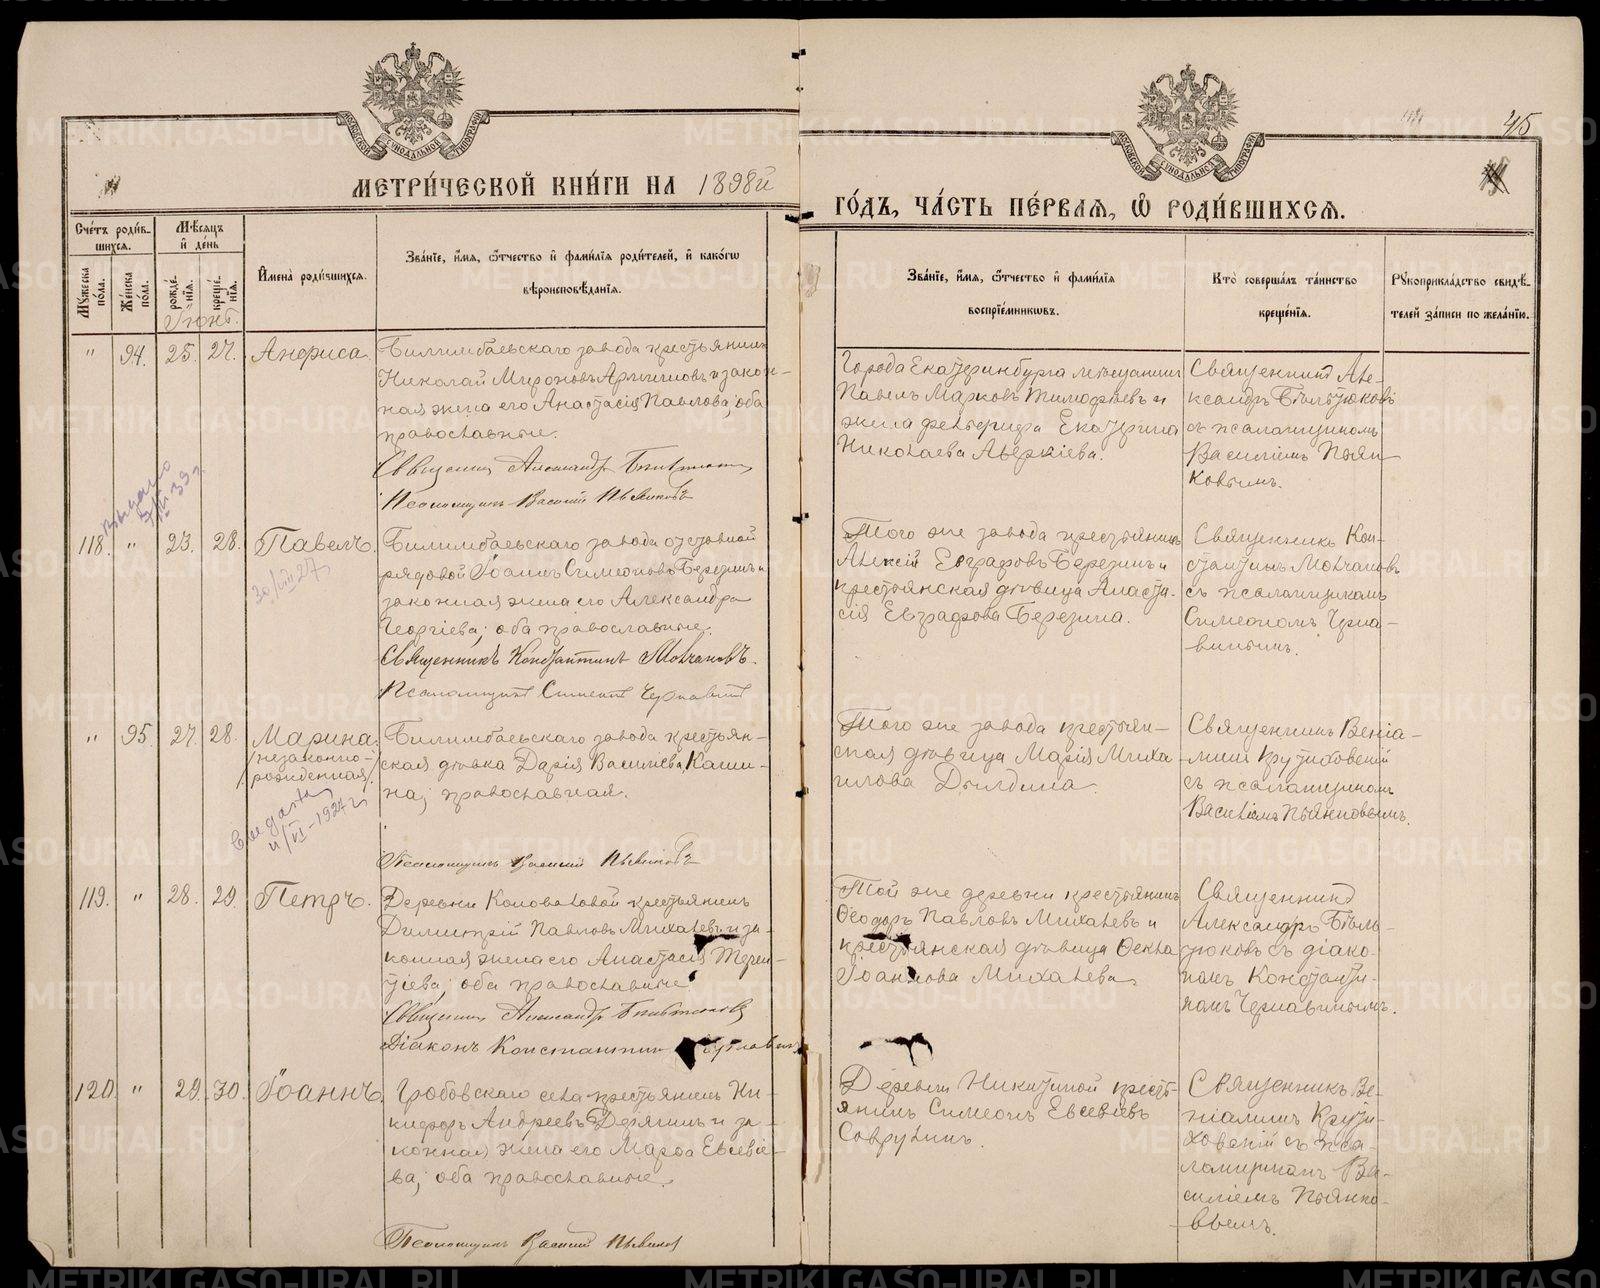 МЕТРИ́ЧЕСКОЙ КНИ́ГИ НА 1898й
ГО́ДЪ, ЧА́СТЬ ПЕ́РВАЯ, Ѡ РОДИ́ВШИХСЯ.
45
Сче́тъ роди́в-
шихся.
Мꙋ́жеска по́ла.
Же́нска по́ла.
Мѣ́сяцъ
и҆ де́нь
рожде́-
нїя.
креще́-
нїя.
Іюнь.
И҆мена̀ роди́вшихся.
Зва́нїе, и҆́мя, ѻ҆́тчество и҆ фами́лїя роди́телей, и҆ како́гѡ
вѣроисповѣ́данїя.
Зва́нїе, и҆́мя, ѻ҆́тчество и҆ фами́лїя
воспрїе́мникѡвъ.
Кто̀ соверша́лъ та́инство
креще́нїя.
Рꙋкоприкла́дство свидѣ́-
телей за́писи по жела́нїю.
" 94. 25. 27. Анфиса.
Билимбаевскаго завода крестьянинъ
Николай Мироновъ и закон-
ная жена его Анастасія Павлова; оба
православные.
Священникъ Александръ
Псаломщикъ Василій Пьянковъ
Города Екатеринбурга мѣщанинъ
Павелъ Марковъ Тимофѣевъ и
жена фельдшера Екатерина
Николаева Аверкіева.
Священникъ Але-
ксандръ Бѣльтюковъ
съ псаломщикомъ
Василіемъ Пьян-
ковымъ.
118. " 23. 28. Павелъ.
30/VIII 27 г
Билимбаевскаго завода отставной
рядовой Іоаннъ Симеоновъ Березинъ и
законная жена его Александра
Георгіева; оба православные.
Священникъ Константинъ Молчановъ.
Псаломщикъ Симеонъ Чернавинъ
Того же завода крестьянинъ
Алексій Евграфовъ Березинъ и
крестьянская дѣвица Анаста-
сія Евграфова Березина.
Священникъ Кон-
стантинъ Молчановъ
съ псаломщикомъ
Симеономъ Черна-
винымъ.
" 95. 27. 28. Марина.
/незаконно-
рожденная/.
Билимбаевскаго завода крестьян-
ская дѣвка Дарія Васильева
православная.
Псаломщикъ Василій Пьянковъ
Того же завода крестьян-
ская дѣвица Марія Миха-
илова Дылдина.
Священникъ Веніа-
минъ Крутиховскій
съ псаломщикомъ
Василіемъ Пьянковымъ.
119. " 28. 29. Петръ.
Деревни Коноваловой крестьянинъ
Димитрій Павловъ Михалевъ и за-
конная жена его Анастасія Терен-
тіева; оба православные.
Священникъ Александръ
Діаконъ Константинъ Чернавинъ
Той же деревни крестьянинъ
Ѳеодоръ Павловъ Михалевъ и
крестьянская дѣвица Ѳекла
Іоаннова Михалева.
Священникъ
Александръ Бѣль-
тюковъ съ діако-
номъ Константи-
номъ Чернавинымъ.
120. " 29. 30. Іоаннъ.
Гробовскаго села крестьянинъ Ни-
кифоръ Андреевъ и за-
конная жена его Марѳа Евсевіе-
ва; оба православные.
Псаломщикъ Василій Пьянковъ
Деревни Никитиной кресть-
янинъ Симеонъ Евсевіевъ
Соврулинъ.
Священникъ Ве-
ніаминъ Крути-
ховскій съ пса-
ломщикомъ Ва-
силіемъ Пьянко-
вымъ.